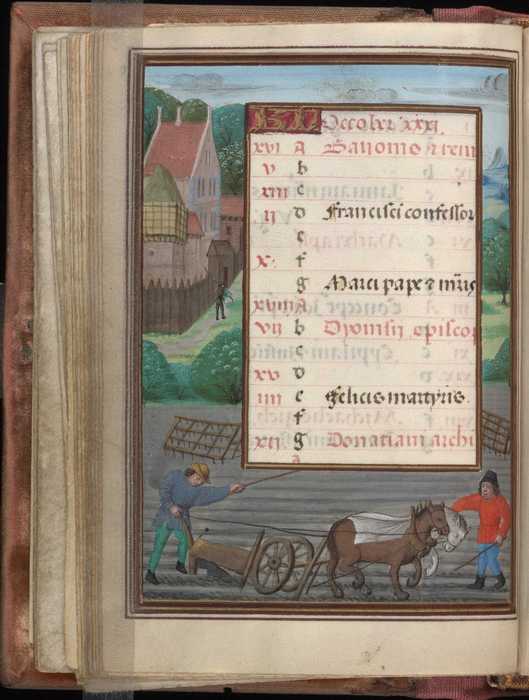 KL Octobr xxxj
xvj A Bauonis & rem
v b
xiij c
ij d Francisci confessor
e
x f
g Marci pape & mris
xviij A
vij b Dyonisij episcop
c
xv d
iiij e Felicis martyris.
f
xij g Donatiani archi
a